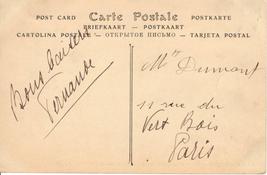 POST CARD Carte Postale POSTKARTE
BRIEFKAART — POSTKAART
CARTOLINA POSTALE — ОТКРЫТОЕ ПИСЬМО — TARJETA POSTAL
Bons baisers
Fernande
Mlle Dumont
11 rue du
Vert Bois
Paris